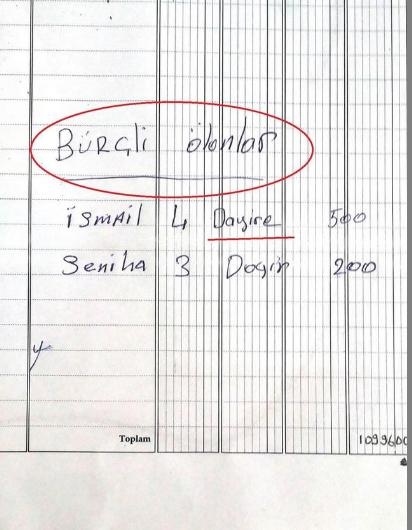 BÜRÇli ölanlar
İSMAİL 4 Dayire 500
Seniha 3 Dogir 200
Toplam 1099600